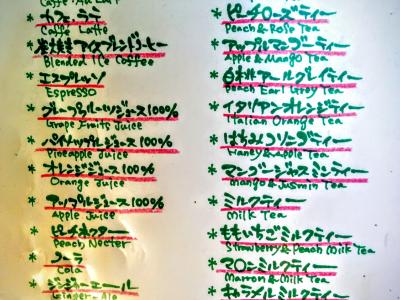 Caffe Au Lait
* カフェラテ
Caffe Latte
アイスブレンドコーヒー
Blended Ice Coffee
* エスプレッソ
Espresso
* グレープフルーツジュース100%
Grape Fruits Juice
* パイナップルジュース100%
Pineapple Juice
* オレンジジュース100%
Orange Juice
* アップルジュース100%
Apple Juice
* ピーチネクター
Peach Necter
* コーラ
Cola
* ジンジャーエール
Ginger-Ale
* ピーチローズティー
Peach & Rose Tea
* アップルマンゴーティー
Apple & Mango Tea
* 白桃アールグレイティー
Peach Earl Grey Tea
* イタリアンオレンジティー
Italian Orange Tea
* はちみつリンゴティー
Honey & Apple Tea
* マンゴージャスミンティー
Mango & Jasmin Tea
* ミルクティー
Milk Tea
* ももいちごミルクティー
Strawberry & Peach Milk Tea
* マロンミルクティー
Marron & Milk Tea
* キャラメルミルクティー